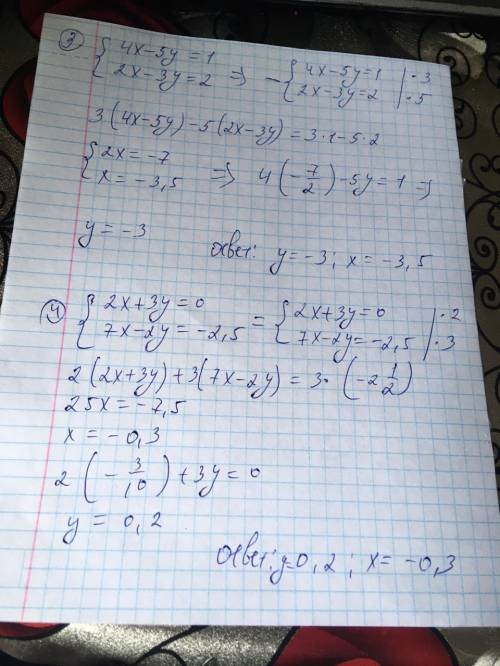 3) { 4x-5y=1
2x-3y=2 => - { 4x-5y=1 | ·3
2x-3y=2 | ·5
3(4x-5y)-5(2x-3y)=3·1-5·2
{ 2x=-7
x=-3,5 => 4(-7/2)-5y=1 =>
y=-3
Ответ: y=-3; x=-3,5
4) { 2x+3y=0
7x-2y=-2,5 = { 2x+3y=0 | ·2
7x-2y=-2,5 | ·3
2(2x+3y)+3(7x-2y)=3·(-2 1/2)
25x=-7,5
x=-0,3
2(-3/10)+3y=0
y=0,2
Ответ: y=0,2; x=-0,3